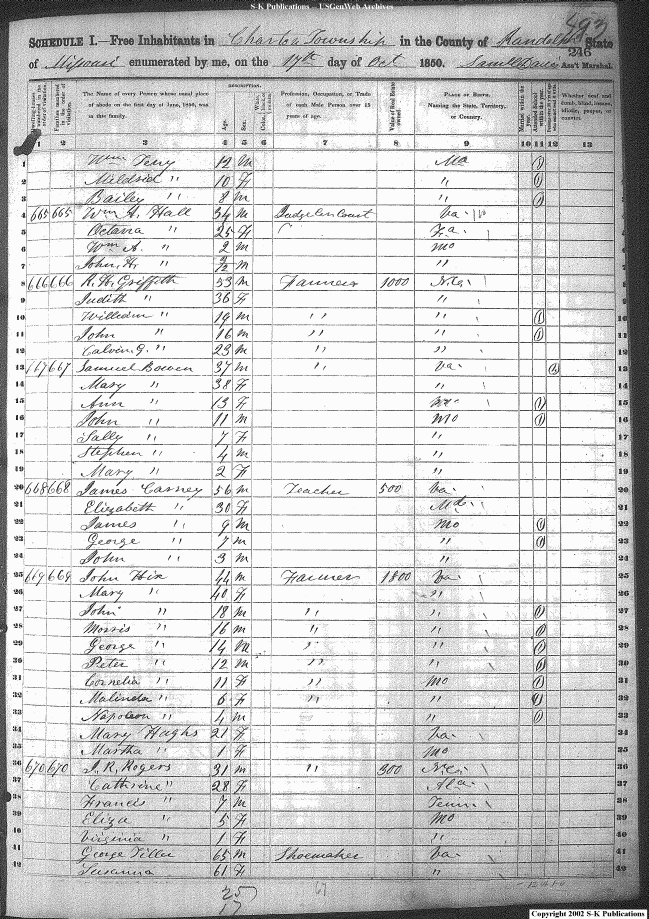 S-K Publications – USGenWeb Archives
593
SCHEDULE I.—Free Inhabitants in Charton Township in the County of Randolph State 246
of Missouri enumerated by me, on the 17th day of Oct 1850. Saml Davis Ass't Marshal.
Dwelling-houses numbered in the order of visitation. Families numbered in the order of visitation. The Name of every Person whose usual place of abode on the first day of June, 1850, was in this family. DESCRIPTION. Age. Sex. Color. Profession, Occupation, or Trade of each Male Person over 15 years of age. Value of Real Estate owned. PLACE OF BIRTH. Naming the State, Territory, or Country. Married within the year. Attended School within the year. Whether deaf and dumb, blind, insane, idiotic, pauper, or convict.
1 2 3 4 5 6 7 8 9 10 11 12 13
1 Wm Terry 12 M Mo 1 1
2 Mildrid " 10 F " 1 2
3 Bailey " 8 M " 1 3
4 665 665 Wm H. Hall 34 M Judge Cir Court Va 4
5 Octavia " 25 F Va 5
6 Wm A. " 2 M Mo 6
7 John H. " 2/12 M " 7
8 666 666 R. H. Griffith 53 M Farmer 1000 N.C. 8
9 Judith " 36 F " 9
10 William " 19 M " " 1 10
11 John " 16 M " " 1 11
12 Calvin G. " 23 M " " 12
13 667 667 Samuel Bowen 37 M " Va 13
14 Mary " 38 F " 14
15 Ann " 13 F 1 15
16 John " 11 M Mo 1 16
17 Sally " 7 F " 17
18 Stephen " 4 M " 18
19 Mary " 2 F " 19
20 668 668 James Carney 56 M Teacher 500 Va 20
21 Elizabeth " 30 F Md 21
22 James " 9 M Mo 1 22
23 George " 7 M " 1 23
24 John " 3 M " 24
25 669 669 John Hix 44 M Farmer 1800 Va 25
26 Mary " 40 F " 26
27 John " 18 M " " 1 27
28 Morris " 16 M " " 1 28
29 George " 14 M " " 1 29
30 Peter " 12 M " " 1 30
31 Cornelia " 11 F " Mo 1 31
32 Malinda " 6 F " " 1 32
33 Napoleon " 4 M " 1 33
34 Mary Haghs 21 F Va 34
35 Martha " 1 F Mo 35
36 670 670 J. R. Rogers 31 M " 300 N.C. 36
37 Cathrine " 28 F Ala 37
38 Francis " 7 M Tenn 38
39 Eliza " 5 F Mo 39
40 Virginia " 1 F " 40
41 George Tiller 65 M Shoemaker Va 41
42 Susanna 61 F " 42
25
17
67
Copyright 2002 S-K Publications